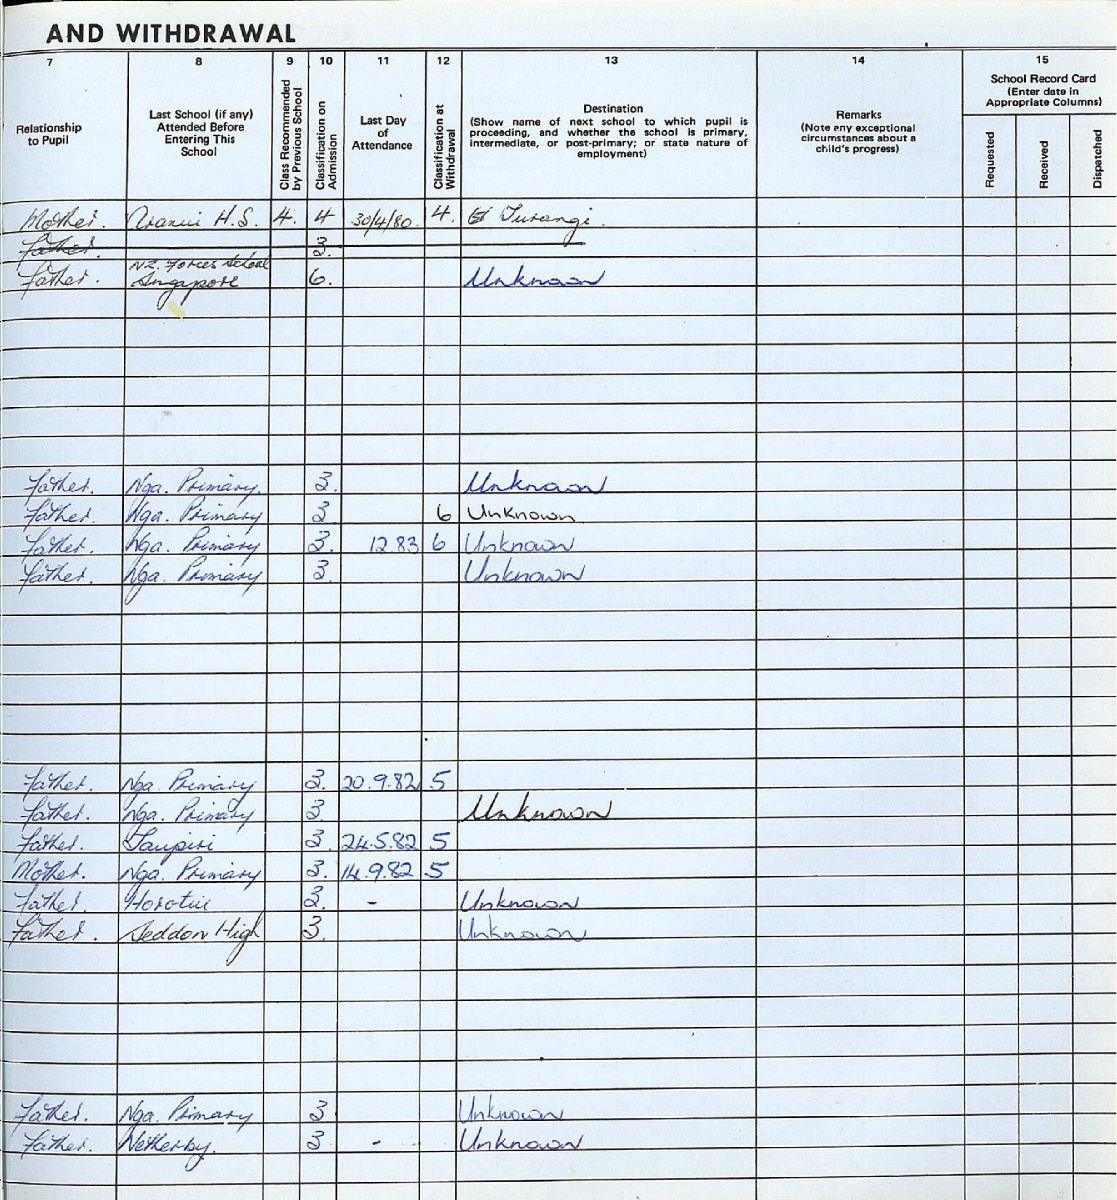 AND WITHDRAWAL
7 8 9 10 11 12 13 14 15
Relationship to Pupil
Last School (if any) Attended Before Entering This School
Class Recommended by Previous School
Classification on Admission
Last Day of Attendance
Classification at Withdrawal
Destination
(Show name of next school to which pupil is proceeding, and whether the school is primary, intermediate, or post-primary; or state nature of employment)
Remarks
(Note any exceptional circumstances about a child's progress)
School Record Card
(Enter date in Appropriate Columns)
Requested
Received
Dispatched
Mother. Aranui H.S. 4. 4 30/4/80. 4. Turangi.
Father. 3.
Father. N.Z. Forces School Singapore 6. Unknown
Father. Nga. Primary. 3. Unknown
Father. Nga. Primary 3 6 Unknown.
Father. Nga. Primary 3. 12.83 6 Unknown
Father. Nga. Primary 3. Unknown
Father. Nga. Primary 3. 20.9.82 5
Father. Nga. Primary 3. Unknown
Father. Taupiri 3. 24.5.82 5
Mother. Nga. Primary 3. 14.9.82 5
Father. Horotiu 3. - Unknown
Father. Seddon High 3. Unknown
Father. Nga. Primary 3 Unknown
Father. Netherby. 3 - Unknown